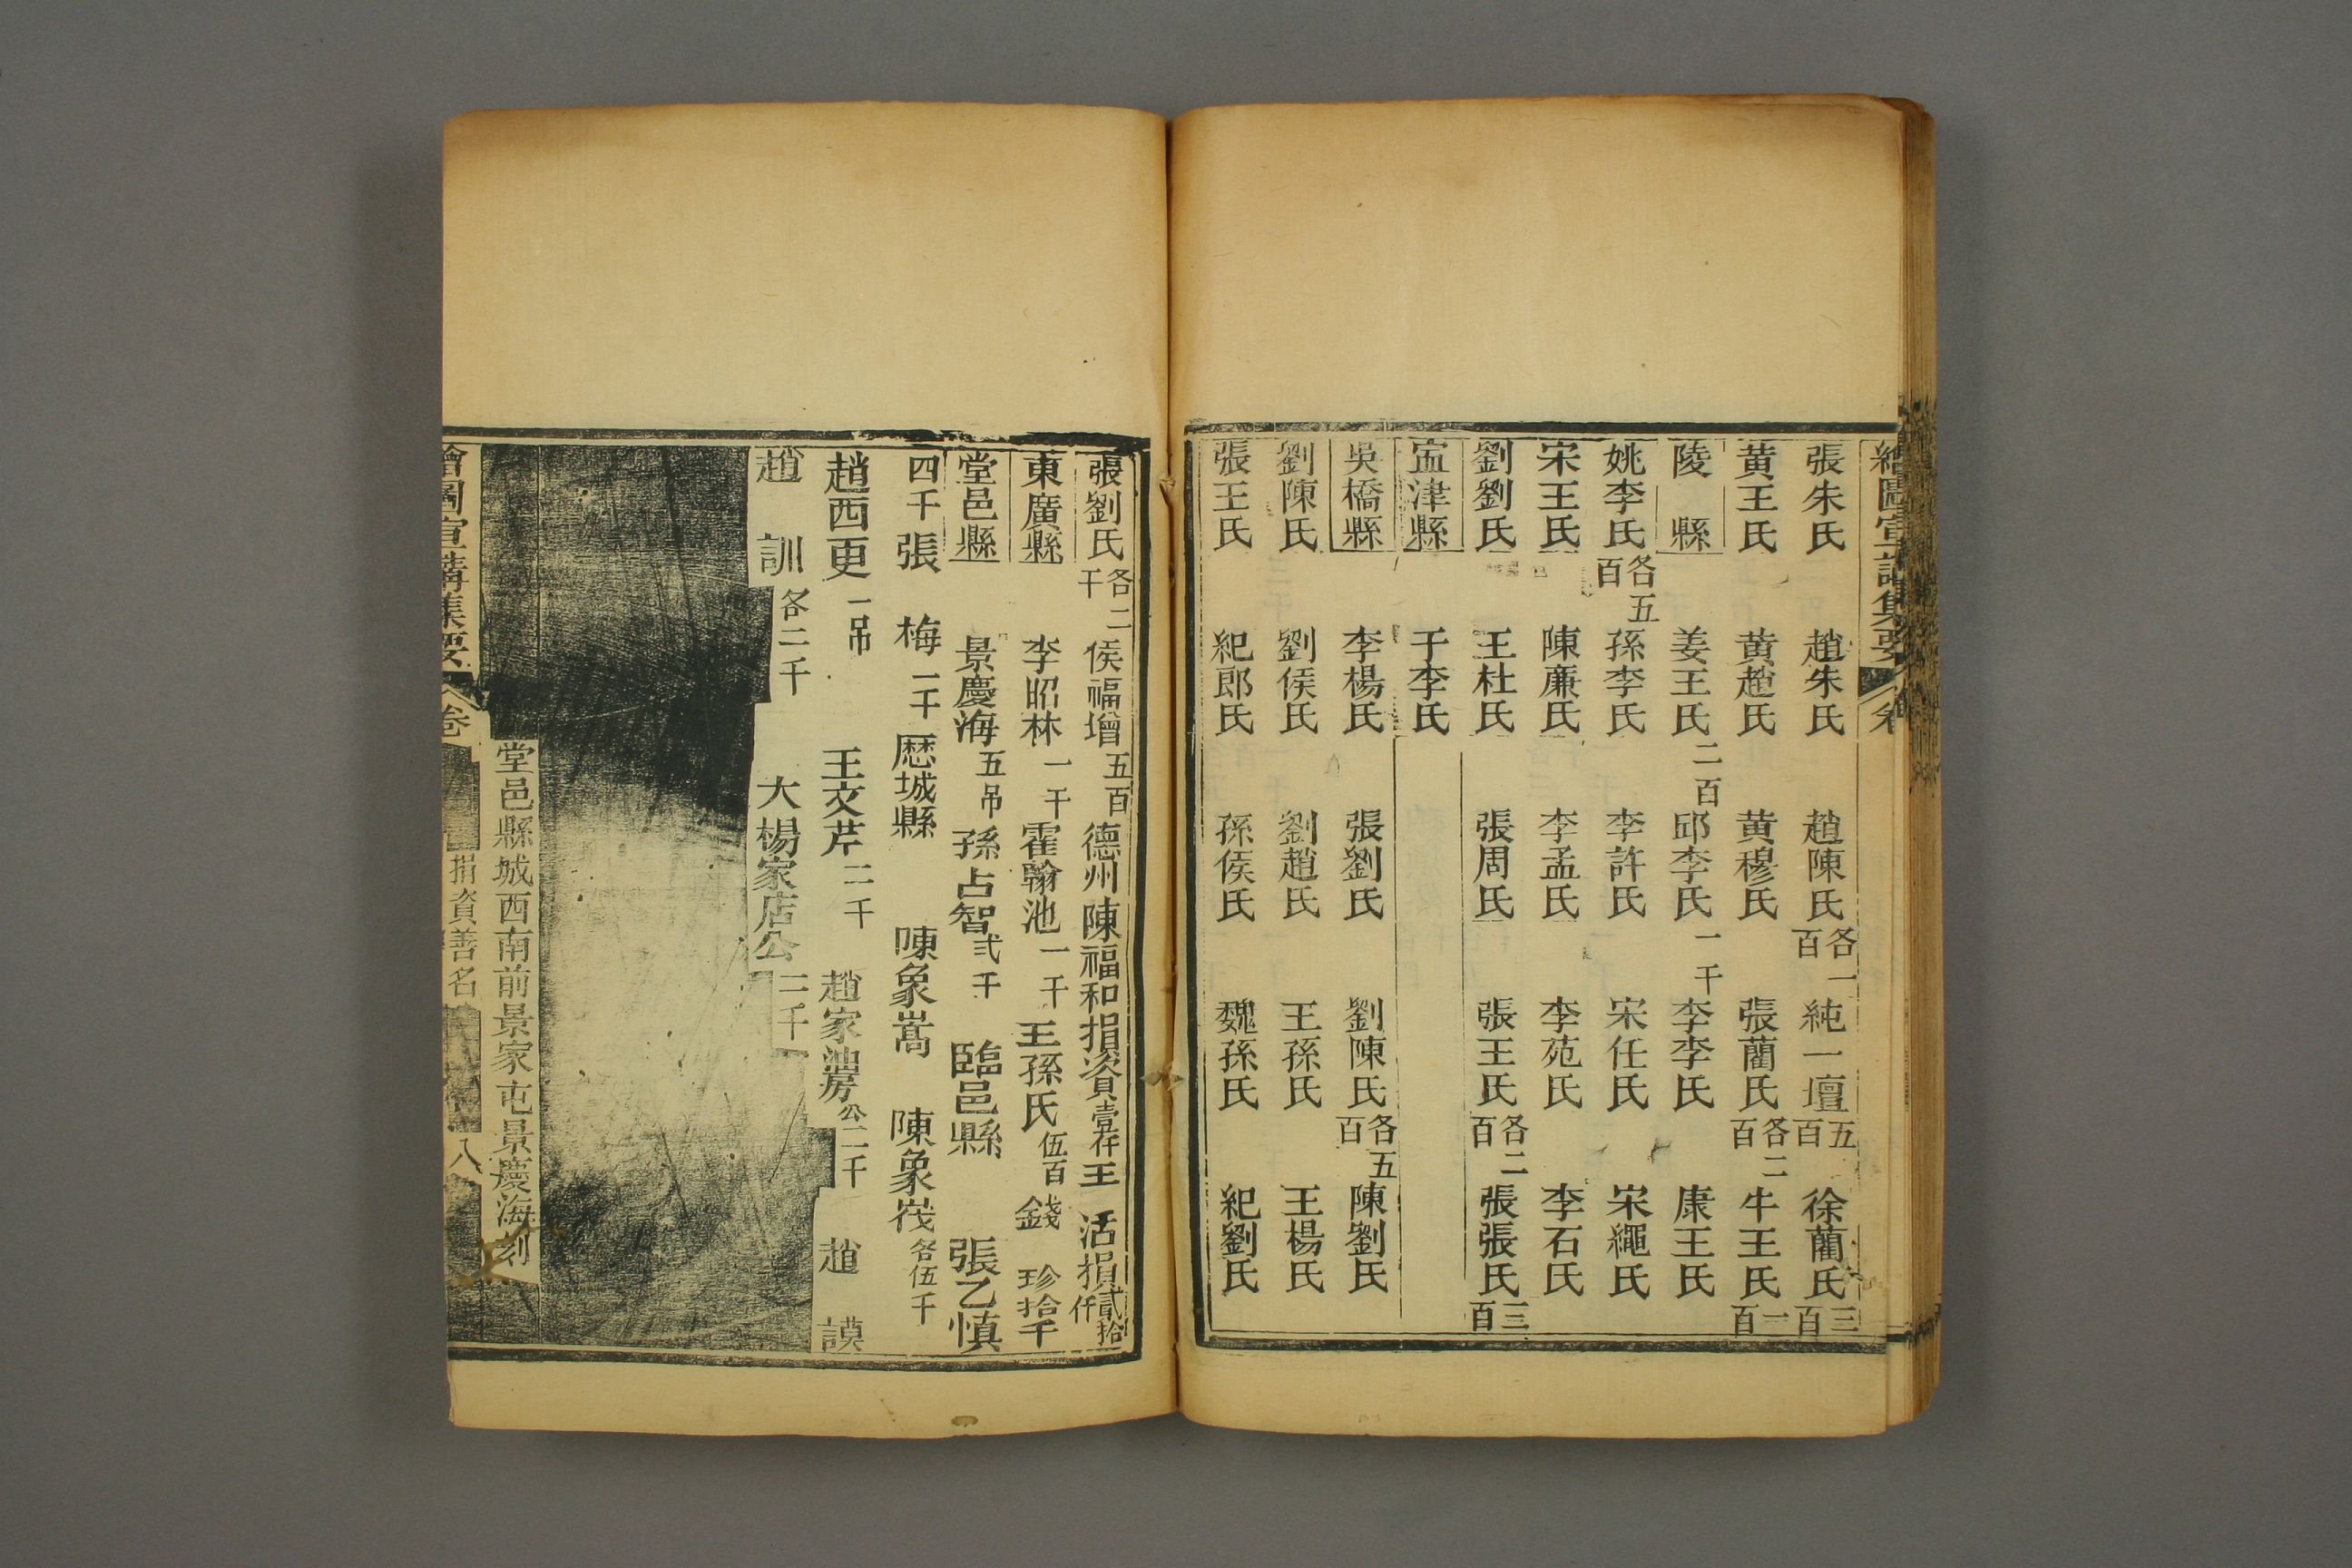 繪圖宣講集要 卷
張朱氏 趙朱氏 趙陳氏 各一百 純一壇 五百 徐藺氏 三百
黃王氏 黃趙氏 黃穆氏 張藺氏 各二百 牛王氏 一百
陵縣 姜王氏 二百 邱李氏 一千 李李氏 康王氏
姚李氏 各五百 孫李氏 李許氏 宋任氏 宋繩氏
宋王氏 陳廉氏 李孟氏 李苑氏 李石氏
劉劉氏 王杜氏 張周氏 張王氏 各二百 張張氏 三百
寍津縣 于李氏
吳橋縣 李楊氏 張劉氏 劉陳氏 各五百 陳劉氏
劉陳氏 劉侯氏 劉趙氏 王孫氏 王楊氏
張王氏 紀郎氏 孫侯氏 魏孫氏 紀劉氏
張劉氏 各二千 侯福增 五百 德州陳福和捐資壹仟 王活損貳拾仟
東廣縣 李昭林 一千 霍翰池 一千 王孫氏 伍百 錢珍拾千
堂邑縣 景慶海 五吊 孫占智 弍千 臨邑縣 張乙慎
四千 張梅 二千 歷城縣 陳象嵩 陳象峩 各伍千
趙西更 一吊 王文芹 二千 趙家池 公二千 趙謨
趙訓 各二千 大楊家店公 二千
堂邑縣城西南前景家屯景慶海刻
繪圖宣講集要 卷 捐資善名 八